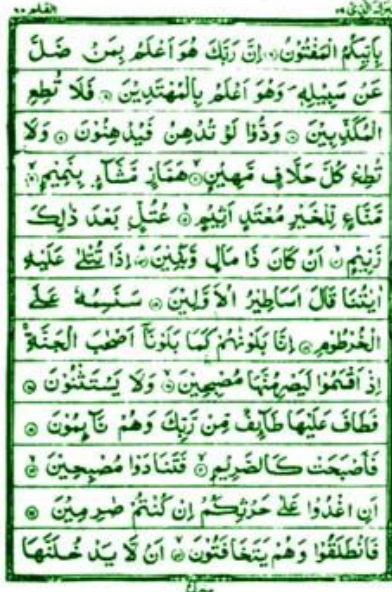 القلم ٦٨ تبرك الذي ٢٩
بِاَيِّكُمُ الْمَفْتُوْنُ ۞ اِنَّ رَبَّكَ هُوَ اَعْلَمُ بِمَنْ ضَلَّ
عَنْ سَبِيْلِهٖ وَهُوَ اَعْلَمُ بِالْمُهْتَدِيْنَ ۞ فَلَا تُطِعِ
الْمُكَذِّبِيْنَ ۞ وَدُّوْا لَوْ تُدْهِنُ فَيُدْهِنُوْنَ ۞ وَلَا
تُطِعْ كُلَّ حَلَّافٍ مَّهِيْنٍ ۞ هَمَّازٍ مَّشَّآءٍ بِنَمِيْمٍ ۞
مَّنَّاعٍ لِّلْخَيْرِ مُعْتَدٍ اَثِيْمٍ ۞ عُتُلٍّ بَعْدَ ذٰلِكَ
زَنِيْمٍ ۞ اَنْ كَانَ ذَا مَالٍ وَّبَنِيْنَ ۞ اِذَا تُتْلٰى عَلَيْهِ
اٰيٰتُنَا قَالَ اَسَاطِيْرُ الْاَوَّلِيْنَ ۞ سَنَسِمُهٗ عَلَى
الْخُرْطُوْمِ ۞ اِنَّا بَلَوْنٰهُمْ كَمَا بَلَوْنَآ اَصْحٰبَ الْجَنَّةِ
اِذْ اَقْسَمُوْا لَيَصْرِمُنَّهَا مُصْبِحِيْنَ ۞ وَلَا يَسْتَثْنُوْنَ ۞
فَطَافَ عَلَيْهَا طَآئِفٌ مِّنْ رَّبِّكَ وَهُمْ نَآئِمُوْنَ ۞
فَاَصْبَحَتْ كَالصَّرِيْمِ ۞ فَتَنَادَوْا مُصْبِحِيْنَ ۞
اَنِ اغْدُوْا عَلٰى حَرْثِكُمْ اِنْ كُنْتُمْ صٰرِمِيْنَ ۞
فَانْطَلَقُوْا وَهُمْ يَتَخَافَتُوْنَ ۞ اَنْ لَّا يَدْخُلَنَّهَا